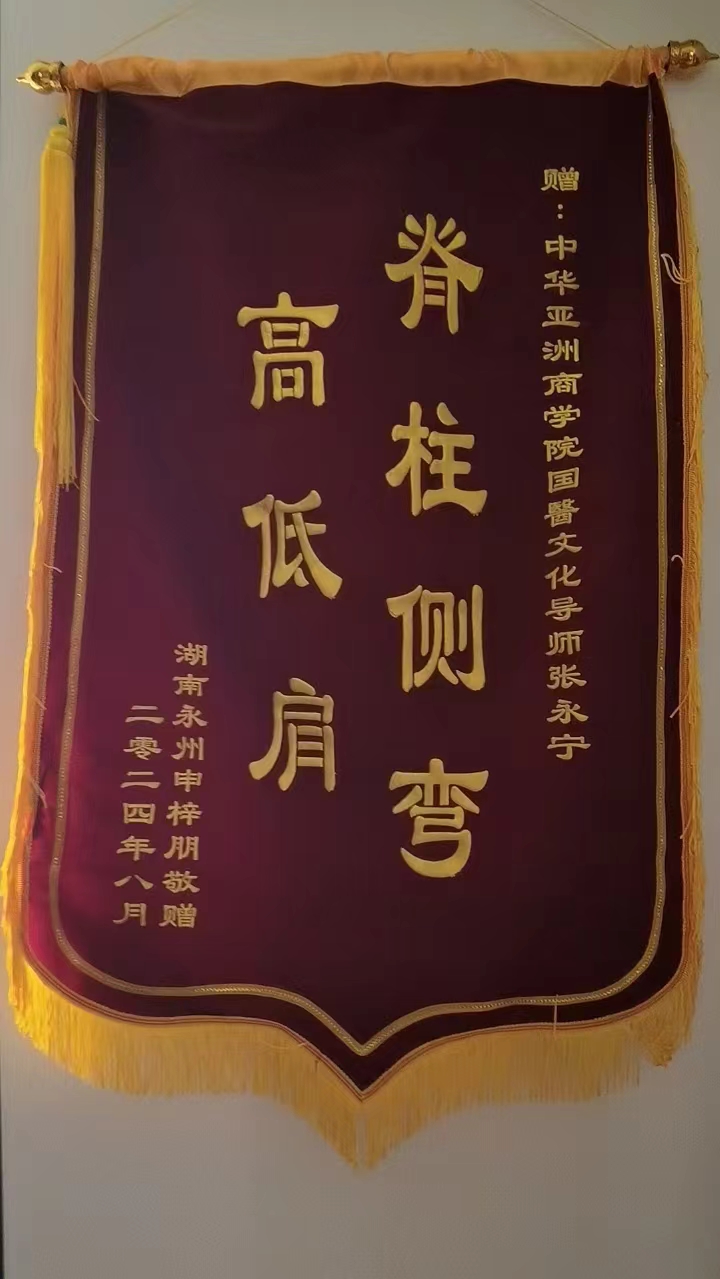 赠：中华亚洲商学院国醫文化导师张永宁
脊柱侧弯
高低肩
湖南永州申梓朋敬赠
二零二四年八月